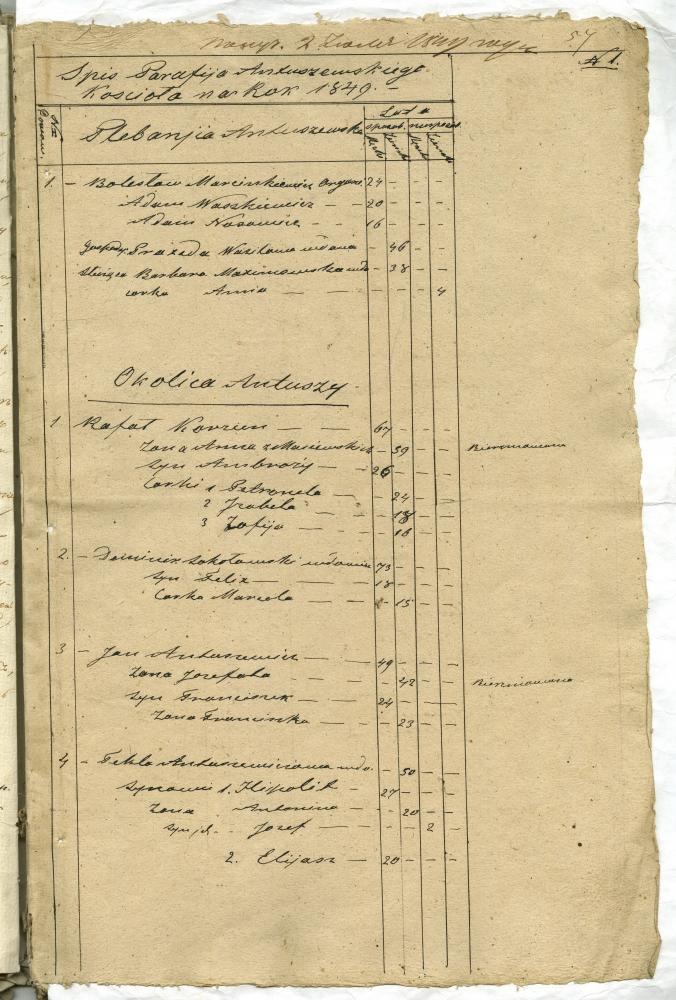 57
№ 1.
Spis Parafija Antuszewskiego
Kościoła na Rok 1849. –
Lata
Plebanja Antuszewska
sposob. niesposob.
1. – Bolesław Marcinkiewicz Organis. 24 – – –
Adam Waszkiewicz – – 20 – – –
Adam Nosowicz – – 16 – – –
Wasilowa wdowa – 46 – –
Służąca Barbara Maximowska wdo – 38 – –
corka Annia – – – – 4
Okolica Antuszy
1 Rafał Korzun – – 67 – – –
Zona Anna z Masiewskich – 59 – –
syn Ambroży – 26 – – –
Corki 1 Petronela – – 24 – –
2 Izabela – – 18 – –
3 Zofija – – 16 – –
2. – Dominik Sokołowski wdowiec 73 – – –
syn Felix – – 18 – – –
Corka Marcela – – – 15 – –
3 – Jan Antuszewicz – – 49 – – –
Zona Jozefata – – 42 – –
syn Franciszek – – 24 – – –
Zona Franciszka – – 23 – –
4 – Tekla Antuszewiczowa wdo. – 50 – –
Synowie 1. Hipolit – 27 – – –
Zona Antonina – – 20 – –
syn ich – Jozef – – – 2 –
2. Elijasz – 20 – – –